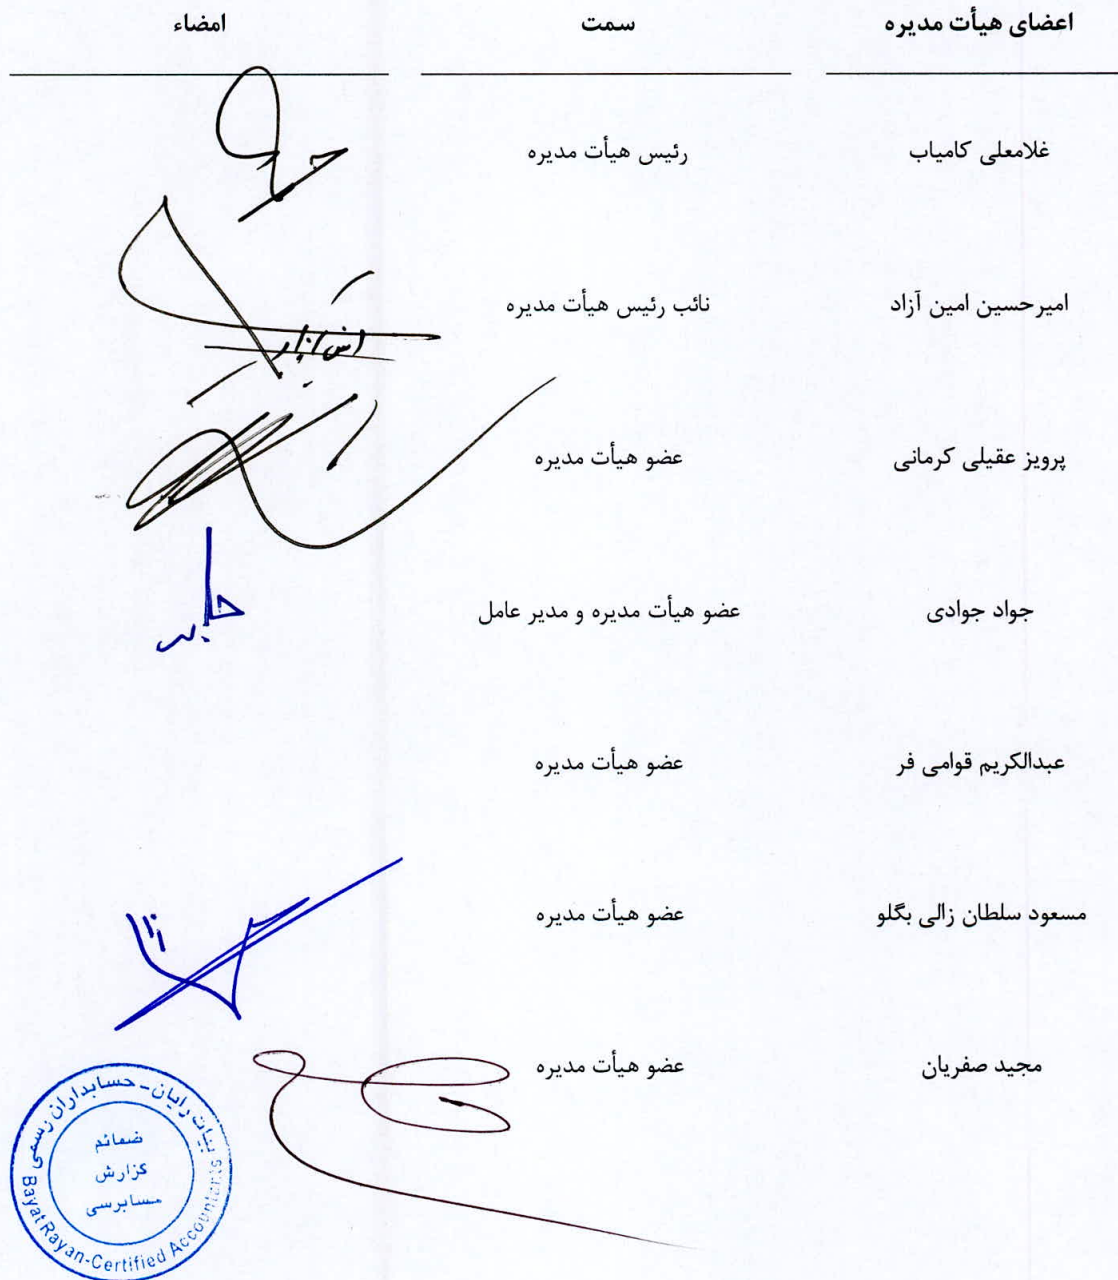 اعضای هیأت مدیره سمت امضاء
غلامعلی کامیاب رئیس هیأت مدیره
امیرحسین امین آزاد نائب رئیس هیأت مدیره
پرویز عقیلی کرمانی عضو هیأت مدیره
جواد جوادی عضو هیأت مدیره و مدیر عامل
عبدالکریم قوامی فر عضو هیأت مدیره
مسعود سلطان زالی بگلو عضو هیأت مدیره
مجید صفریان عضو هیأت مدیره
بیات رایان - حسابداران رسمی
ضمائم
گزارش
حسابرسی
Bayat Rayan-Certified Accountants